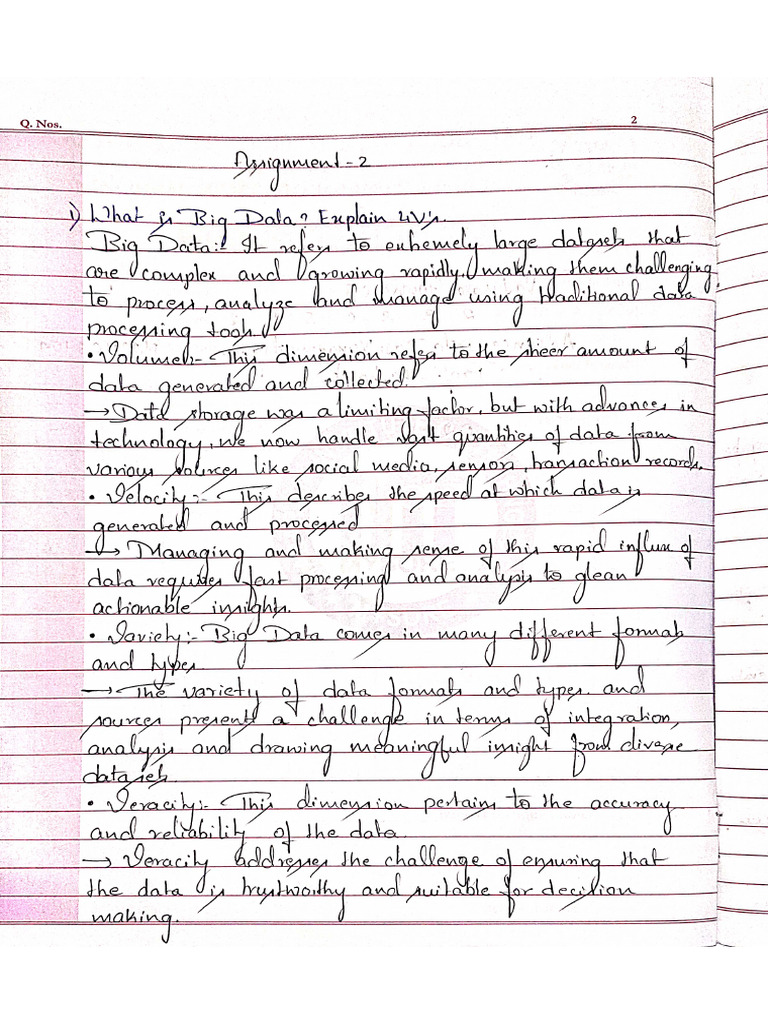 Q. Nos.
2
Assignment - 2
1) What is Big Data? Explain 4V's.
Big Data:- It refers to extremely large datasets that
are complex and growing rapidly, making them challenging
to process, analyze and manage using traditional data
processing tools.
• Volume:- This dimension refers to the sheer amount of
data generated and collected.
→ Data storage was a limiting factor, but with advances in
technology, we now handle vast quantities of data from
various sources like social media, sensors, transaction records.
• Velocity:- This describes the speed at which data is
generated and processed
→ Managing and making sense of this rapid influx of
data requires fast processing and analysis to glean
actionable insights.
• Variety:- Big Data comes in many different formats
and types.
→ The variety of data formats and types and
sources presents a challenge in terms of integration,
analysis and drawing meaningful insight from diverse
datasets.
• Veracity:- This dimension pertains to the accuracy
and reliability of the data.
→ Veracity addresses the challenge of ensuring that
the data is trustworthy and suitable for decision
making.